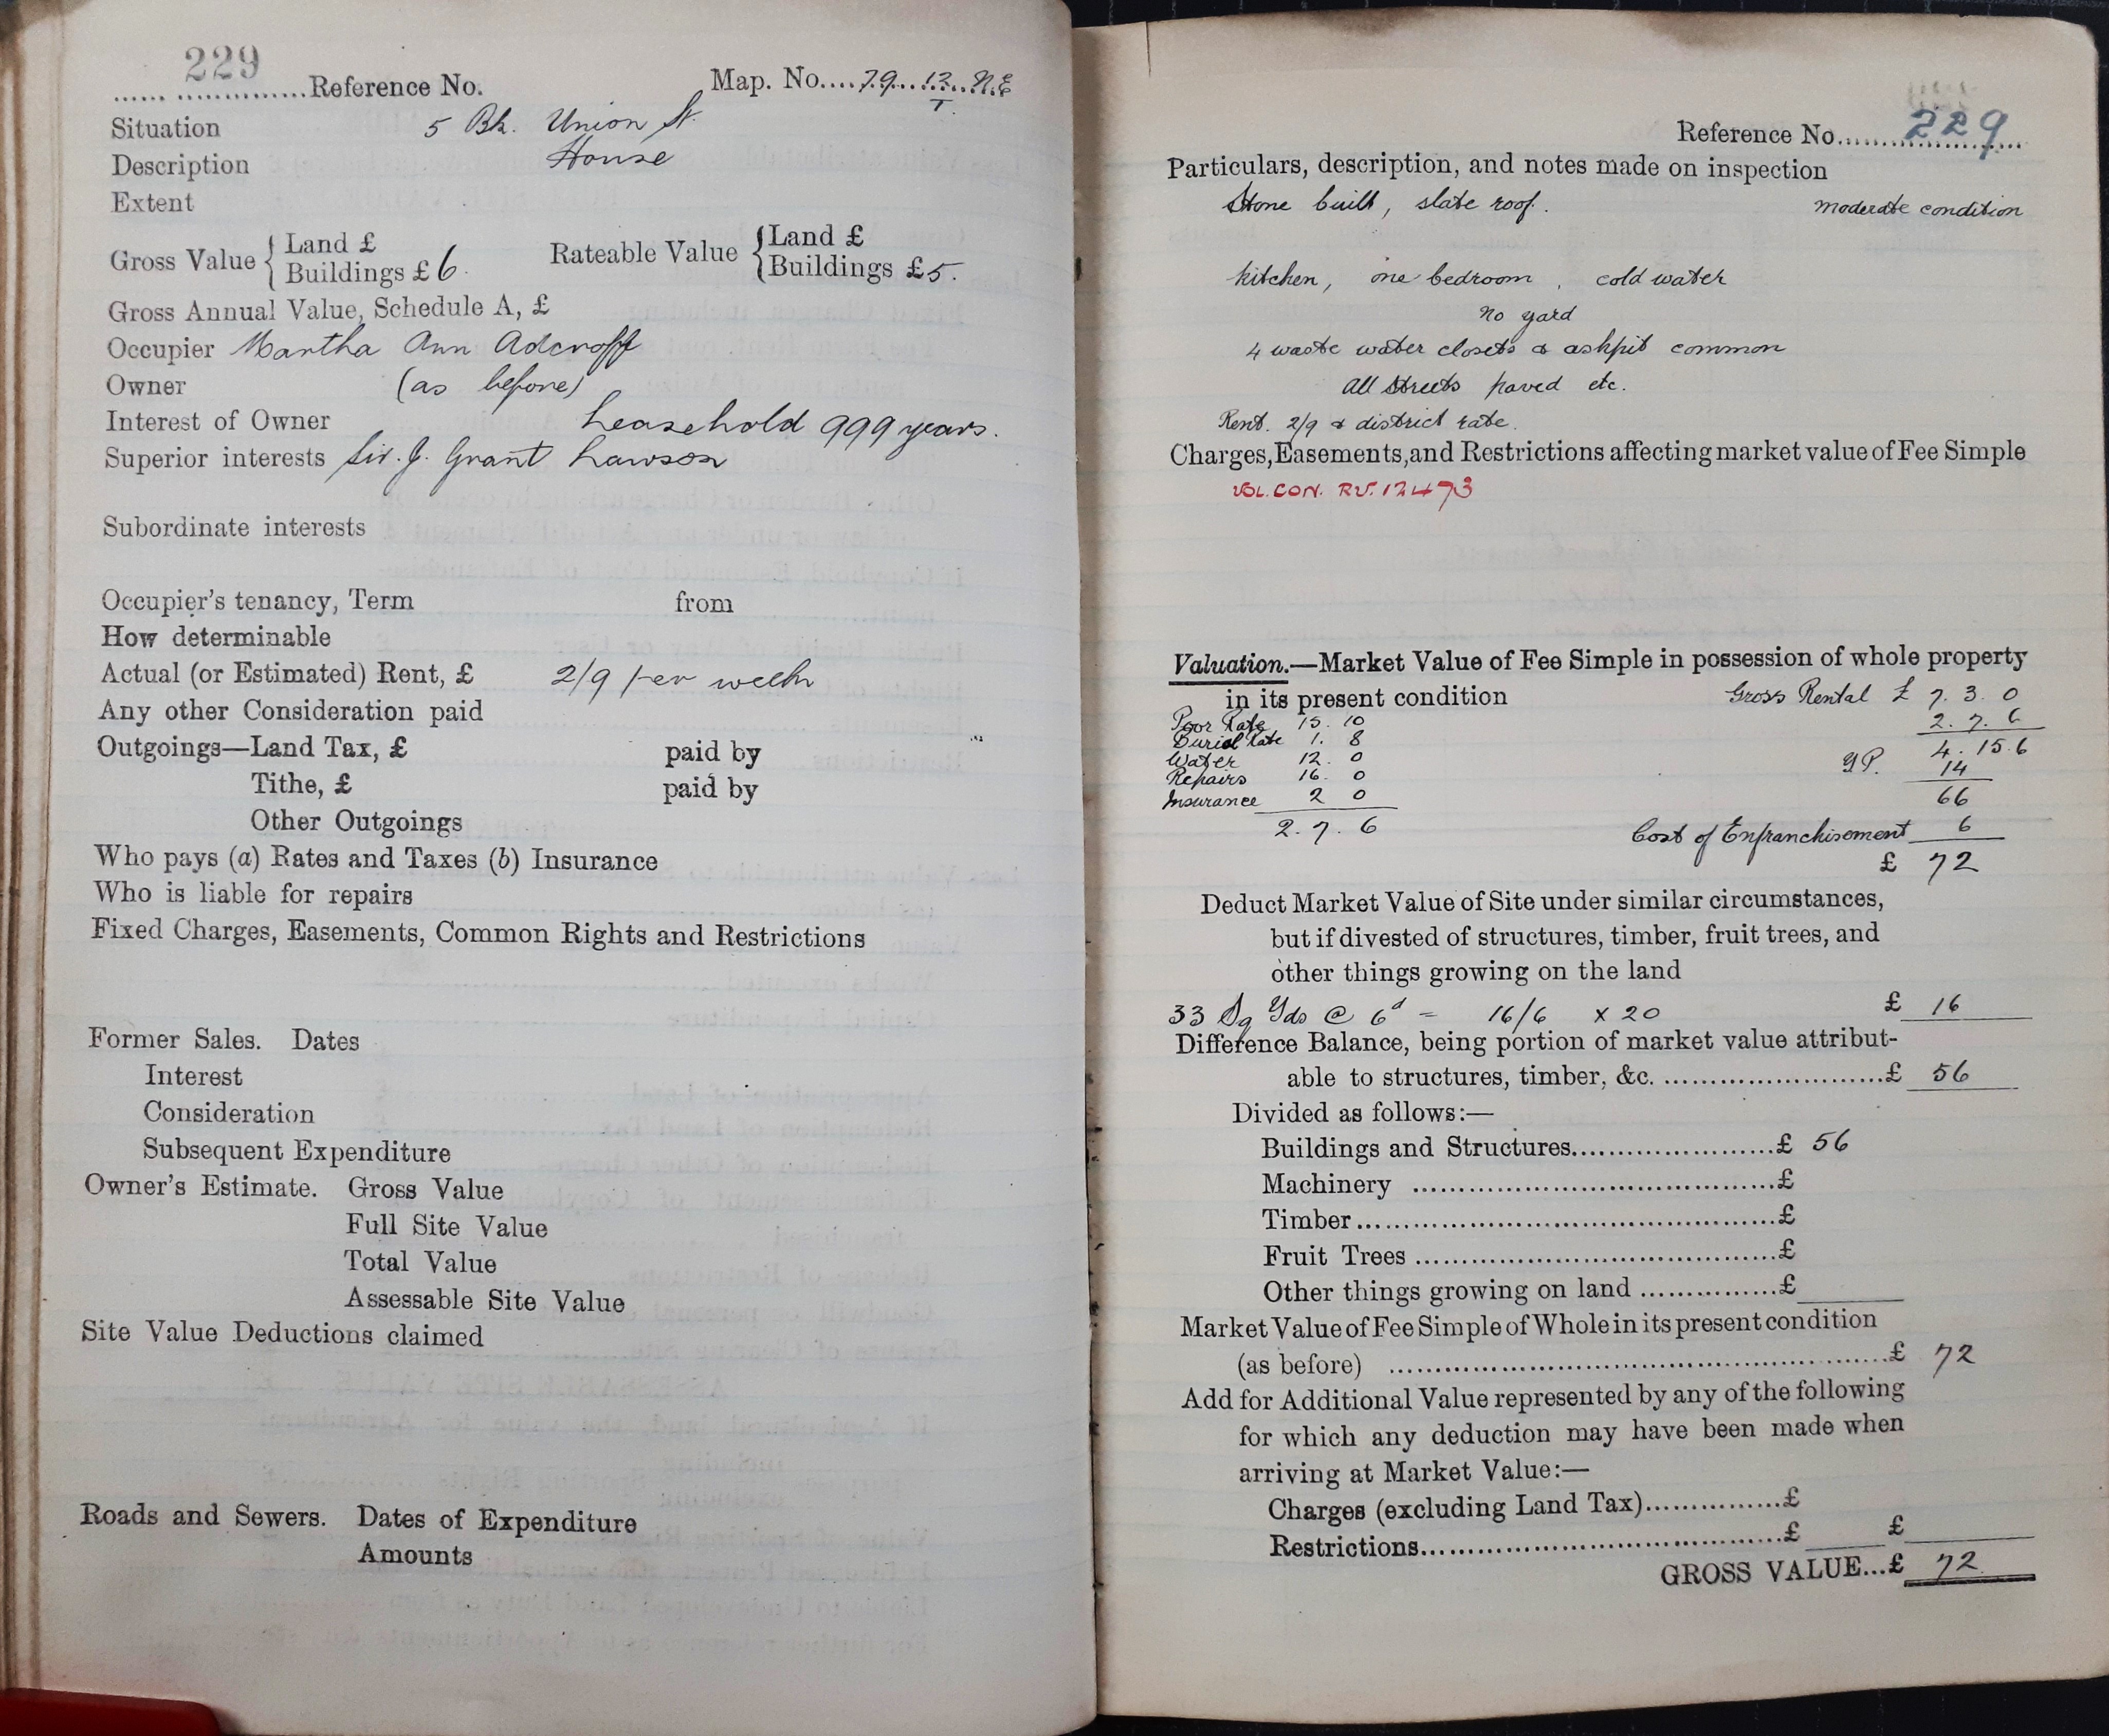 229
...... ..............Reference No. Map. No....79...13...N.E
T.
Situation 5 Bk. Union St.
Description House
Extent
Gross Value { Land £ Rateable Value { Land £
Buildings £ 6. Buildings £ 5.
Gross Annual Value, Schedule A, £
Occupier Martha Ann Adcroft
Owner (as before)
Interest of Owner Leasehold 999 years.
Superior interests Sir. J. Grant Lawson
Subordinate interests
Occupier's tenancy, Term from
How determinable
Actual (or Estimated) Rent, £ 2/9 per week
Any other Consideration paid
Outgoings—Land Tax, £ paid by
Tithe, £ paid by
Other Outgoings
Who pays (a) Rates and Taxes (b) Insurance
Who is liable for repairs
Fixed Charges, Easements, Common Rights and Restrictions
Former Sales. Dates
Interest
Consideration
Subsequent Expenditure
Owner's Estimate. Gross Value
Full Site Value
Total Value
Assessable Site Value
Site Value Deductions claimed
Roads and Sewers. Dates of Expenditure
Amounts
Reference No. 229
Particulars, description, and notes made on inspection
Stone built, slate roof. moderate condition
kitchen, one bedroom, cold water
no yard
4 waste water closets & ashpit common
all streets paved etc.
Rent. 2/9 & district rate.
Charges, Easements, and Restrictions affecting market value of Fee Simple
VOL. CON. RV. 12473
Valuation.—Market Value of Fee Simple in possession of whole property
in its present condition Gross Rental £ 7. 3. 0
Poor Rate 15. 10 2. 7. 6
Burial Rate 1. 8 4. 15. 6
Water 12. 0 Y.P. 14
Repairs 16. 0
Insurance 2 0 66
2. 7. 6 Cost of Enfranchisement 6
£ 72
Deduct Market Value of Site under similar circumstances,
but if divested of structures, timber, fruit trees, and
other things growing on the land
33 Sq Yds @ 6d = 16/6 x 20 £ 16
Difference Balance, being portion of market value attribut-
able to structures, timber, &c. ........................£ 56
Divided as follows:—
Buildings and Structures......................£ 56
Machinery ......................................£
Timber..............................................£
Fruit Trees ......................................£
Other things growing on land ...............£
Market Value of Fee Simple of Whole in its present condition
(as before) ......................................................£ 72
Add for Additional Value represented by any of the following
for which any deduction may have been made when
arriving at Market Value:—
Charges (excluding Land Tax)...............£
Restrictions.......................................£ £
GROSS VALUE...£ 72